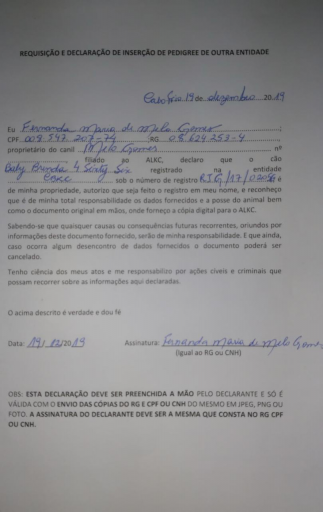 REQUISIÇÃO E DECLARAÇÃO DE INSERÇÃO DE PEDIGREE DE OUTRA ENTIDADE
Cabo Frio, 19 de dezembro 2019
Eu Fernanda Maria de Melo Gomes
CPF RG
proprietário do canil Melo Gomes nº
filiado ao ALKC, declaro que o cão
Baby registrado na entidade
sob o número de registro RIG/17/ e
de minha propriedade, autorizo que seja feito o registro em meu nome, e reconheço
que é de minha total responsabilidade os dados fornecidos e a posse do animal bem
como o documento original em mãos, onde forneço a cópia digital para o ALKC.
Sabendo-se que quaisquer causas ou consequências futuras recorrentes, oriundos por
informações deste documento fornecido, serão de minha responsabilidade. E que ainda,
caso ocorra algum desencontro de dados fornecidos o documento poderá ser
cancelado.
Tenho ciência dos meus atos e me responsabilizo por ações cíveis e criminais que
possam recorrer sobre as informações aqui declaradas.
O acima descrito é verdade e dou fé
Data: 19/12/2019 Assinatura: Fernanda Maria de Melo Gomes
(Igual ao RG ou CNH)
OBS: ESTA DECLARAÇÃO DEVE SER PREENCHIDA A MÃO PELO DECLARANTE E SÓ É
VÁLIDA COM O ENVIO DAS CÓPIAS DO RG E CPF OU CNH DO MESMO EM JPEG, PNG OU
FOTO. A ASSINATURA DO DECLARANTE DEVE SER A MESMA QUE CONSTA NO RG CPF
OU CNH.